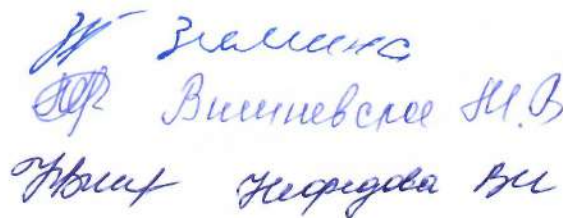 Зимина
Вишневская Н.В
Нефедова ВИ